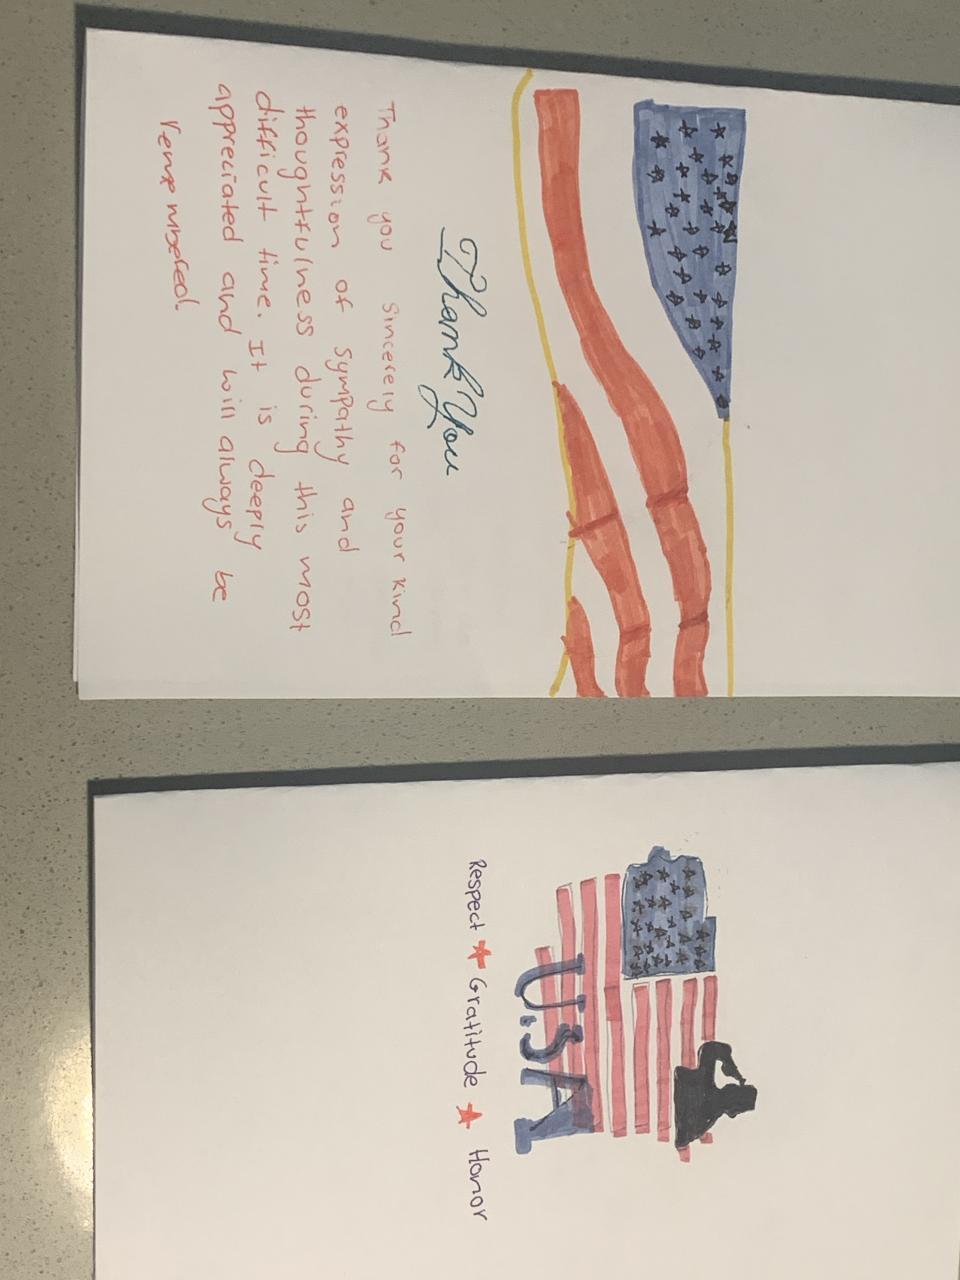 Thank You
Thank you sincerely for your kind
expression of sympathy and
thoughtfulness during this most
difficult time. It is deeply
appreciated and will always be
remembered.
USA
Respect Gratitude Honor